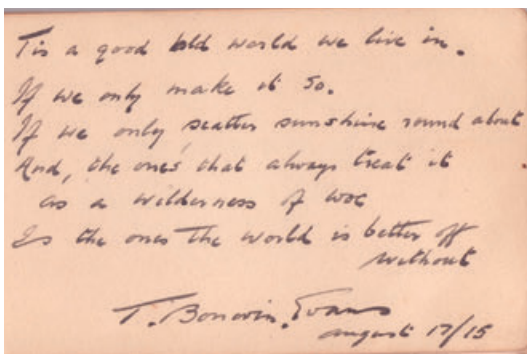 Tis a good old world we live in.
If we only make it so.
If we only scatter sunshine round about
And, the one's that always treat it
as a wilderness of woe
Is the ones the world is better off
without
T. Evans
August 17/15